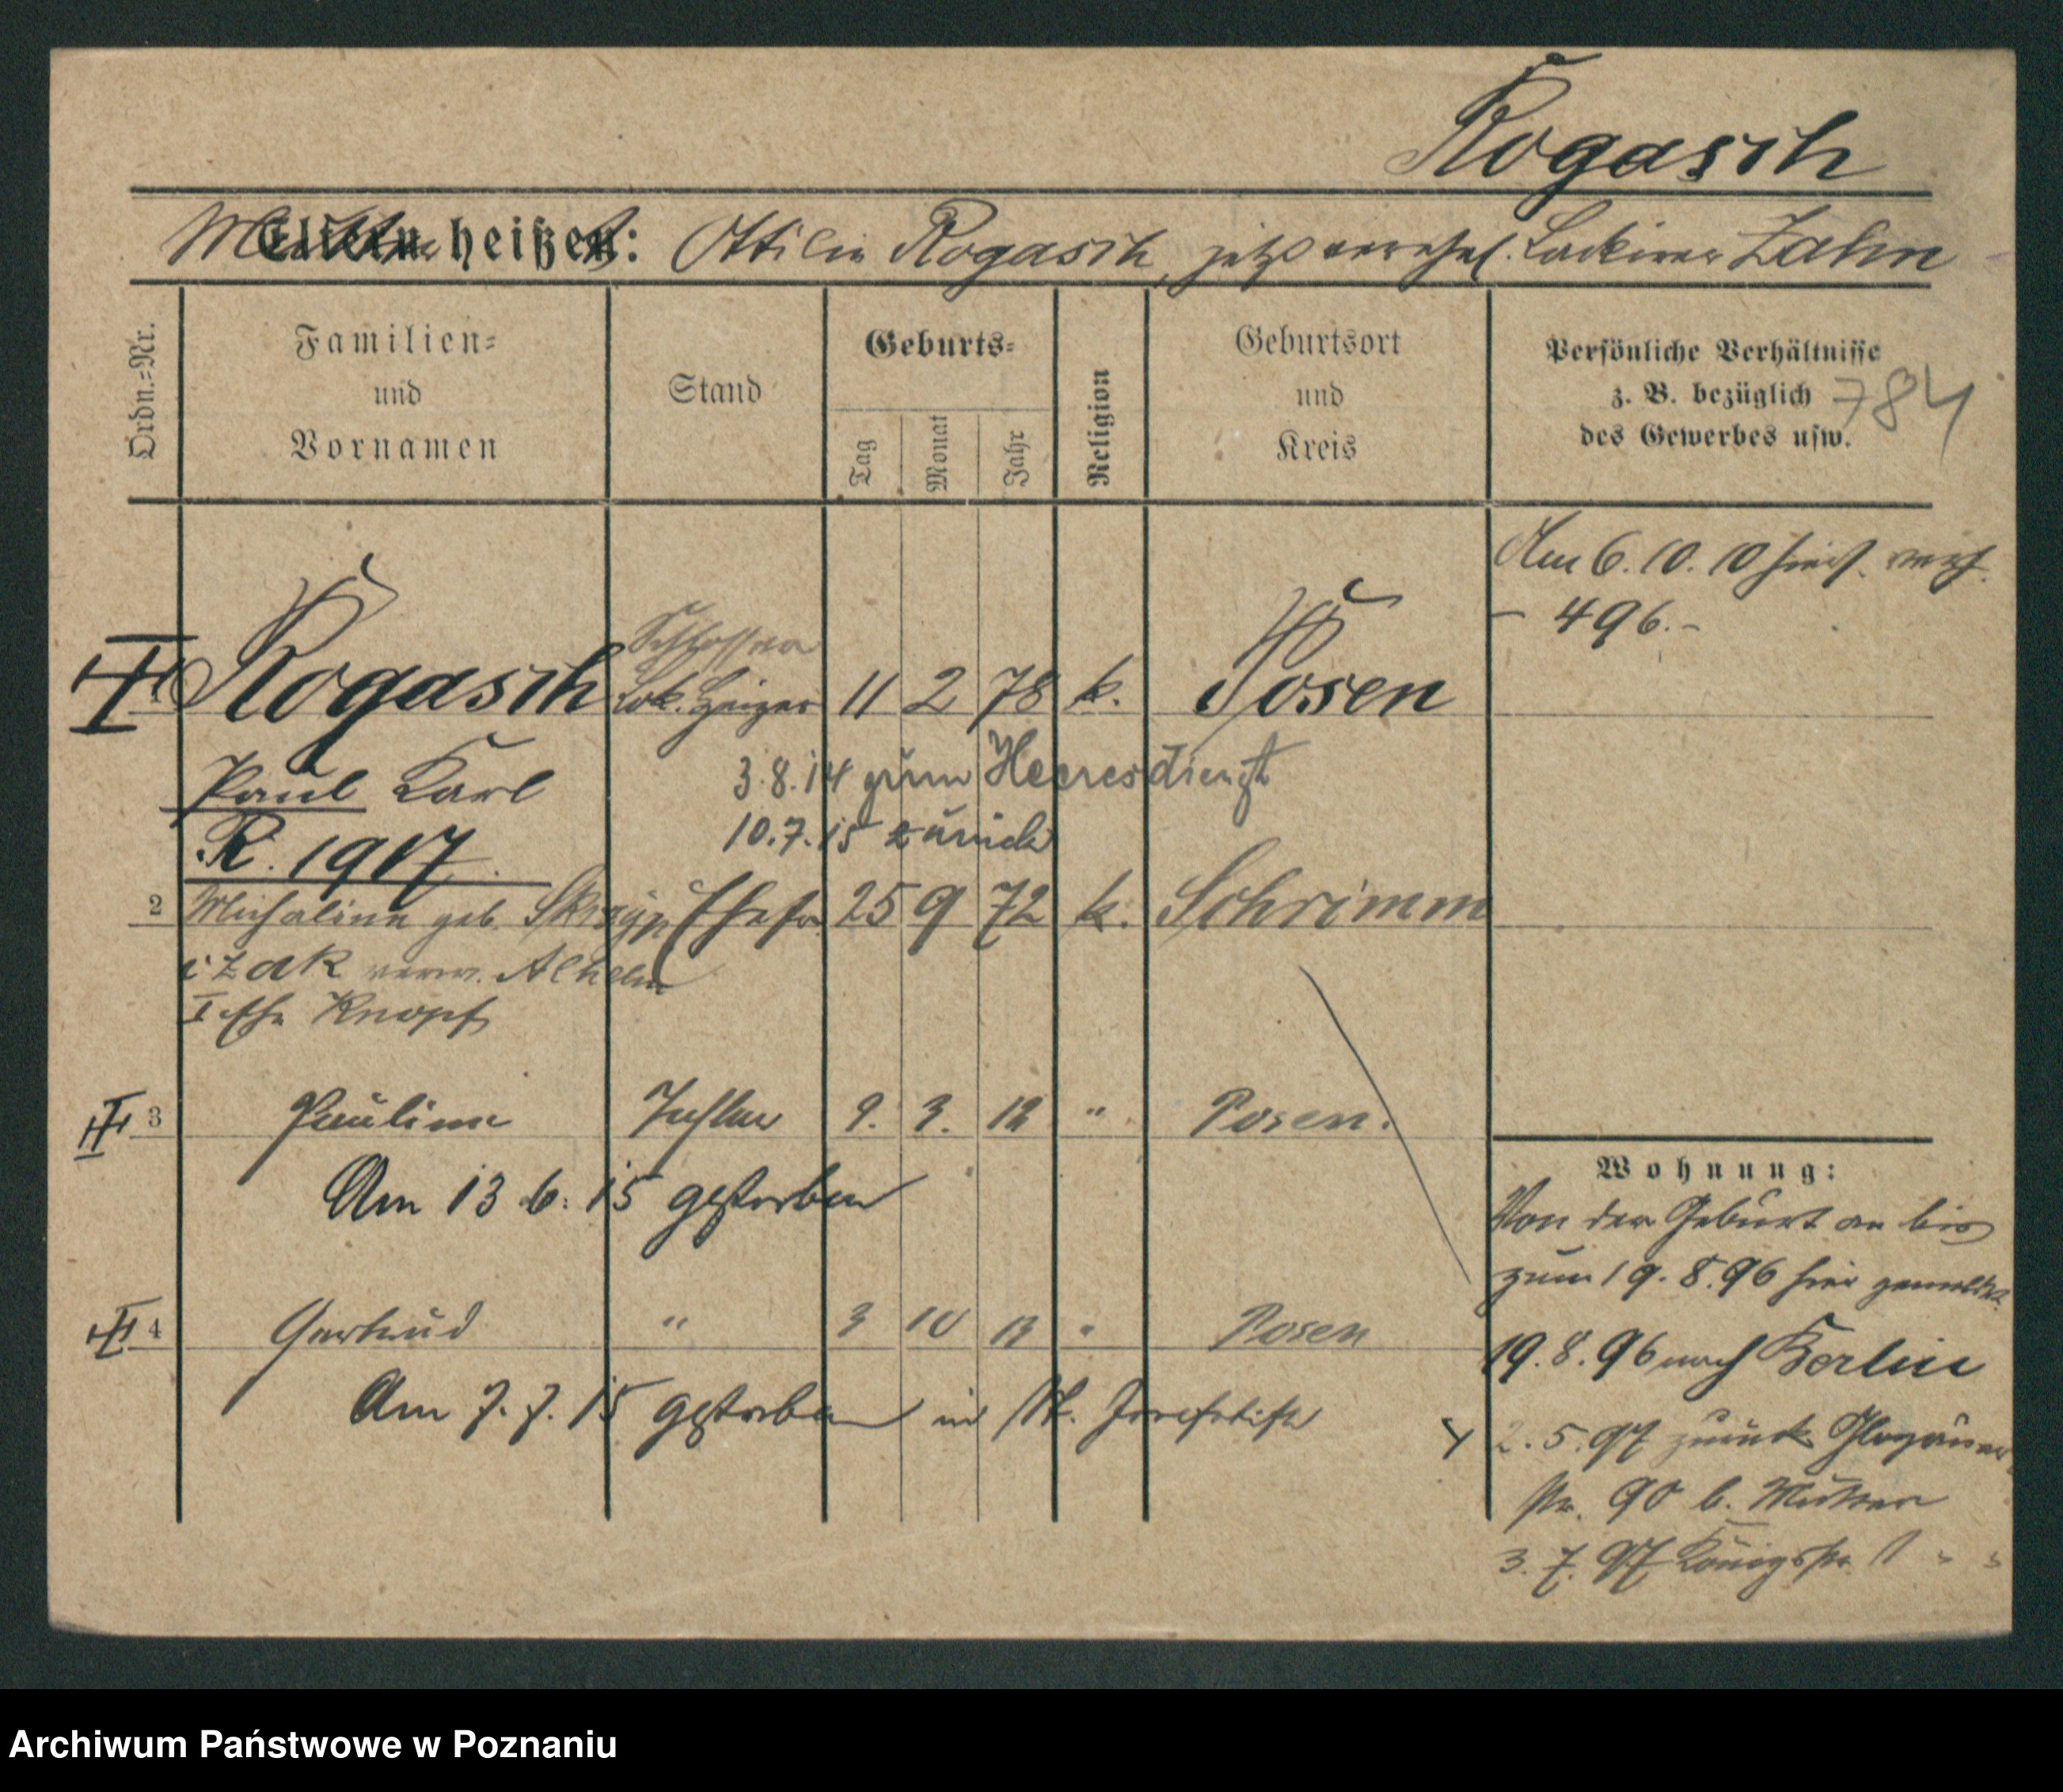 Rogasch
Mutter heißt: Ottilie Rogasch, jetzt verehel. Lackirer Zahn
Ordn.=Nr.
Familien=
und
Vornamen
Stand
Geburts=
Tag
Monat
Jahr
Religion
Geburtsort
und
Kreis
Persönliche Verhältnisse
z. B. bezüglich
des Gewerbes usw.
784
Am 6. 10. 10 hier verh.
- 496.-
Schlosser
1 Rogasch Lok. Heizer 11 2 78 k. Posen
Paul Karl
3.8.14 zum Heeresdienst
R. 1917.
10.7.15 zurück
2 Michaline geb. Skrzyp Ehefr. 25 9 72 k. Schrimm
czak verw. Alhelm
I Ehe Knopf
3 Pauline Tochter 9. 3. 12 " Posen.
Am 13 6. 15 gestorben
4 Gertrud " 3 10 13 " Posen
Am 7. 7. 15 gestorben in St. Josefstift
Wohnung:
Von der Geburt an bis
zum 19. 8. 96 hier gemeldet.
19. 8. 96 nach Berlin
2. 5. 97 zurück Glogauer
str. 90 b. Mutter
3. 7. 97 Königsstr. 1 " "
Archiwum Państwowe w Poznaniu